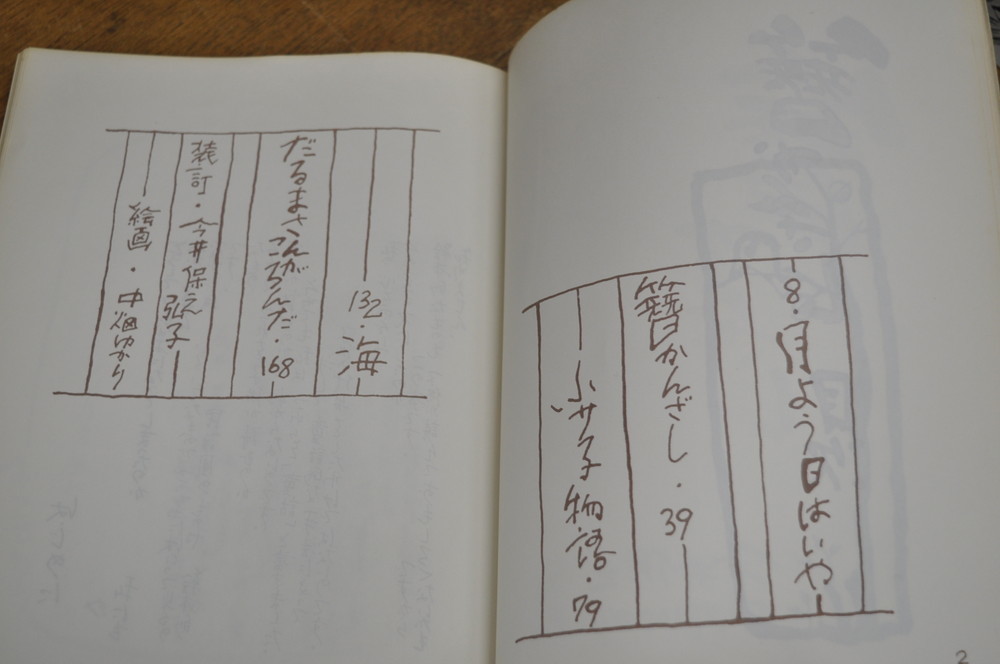 8・月よう日はいや
簪かんざし・39
ふサ子物語・79
132・海
だるまさんがころんだ・168
装訂・今井保
弘子
絵画・中畑ゆかり
2